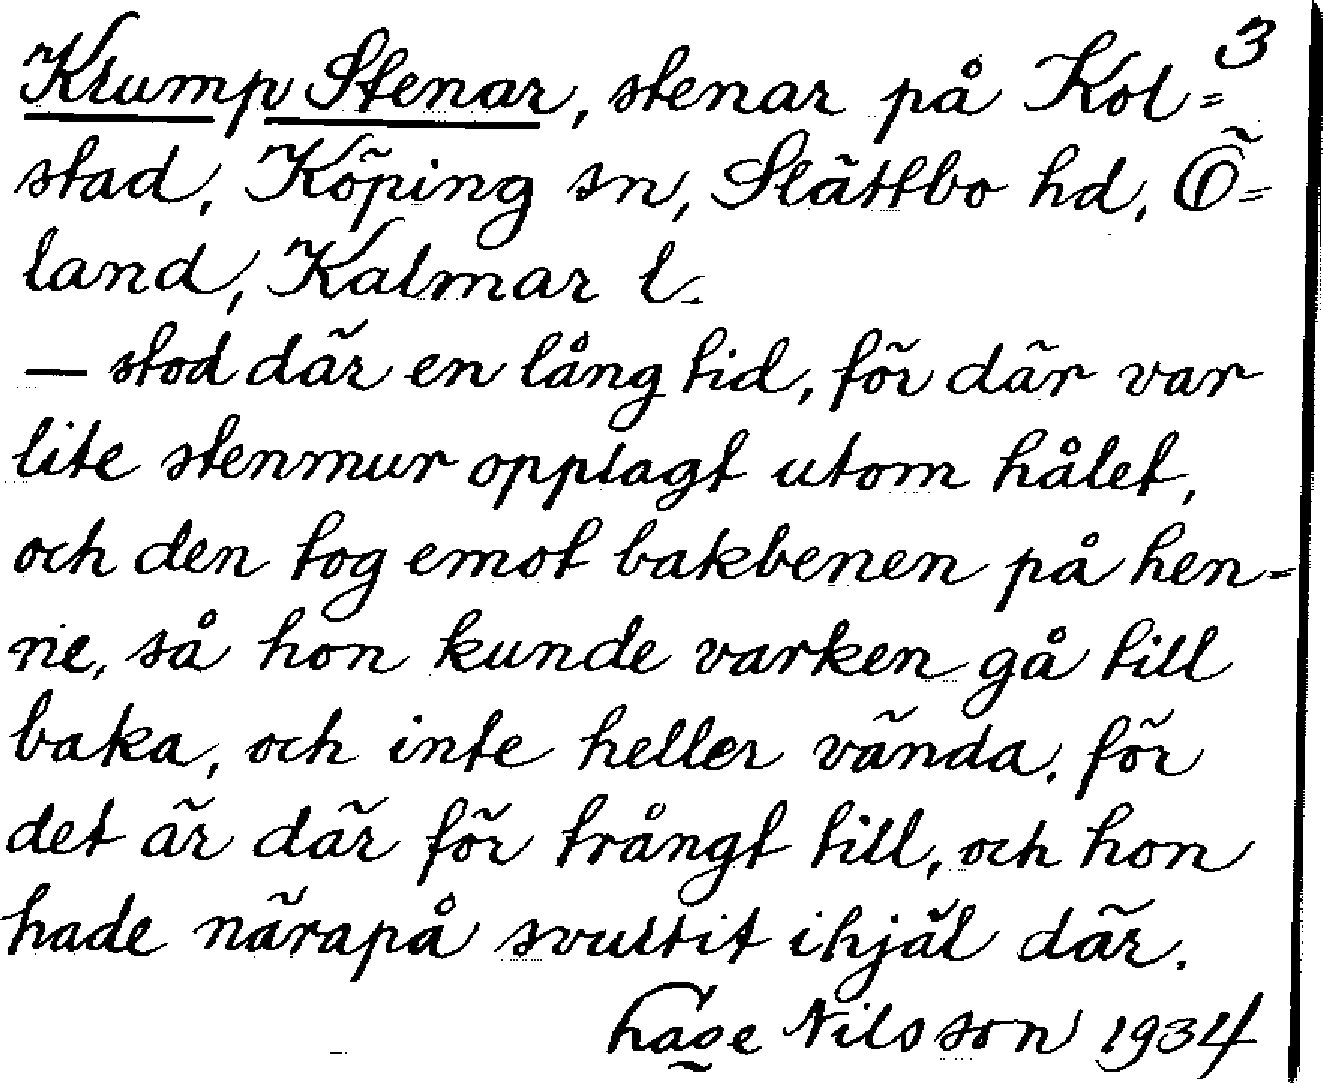 3
Krump Stenar, stenar på Kol=
stad, Köping sn, Slättbo hd, Ö=
land, Kalmar l.
— stod där en lång tid, för där var
lite stenmur opplagt utom hålet,
och den tog emot bakbenen på hen=
ne, så hon kunde varken gå till
baka, och inte heller vända, för
det är där för trångt till, och hon
hade närapå svultit ihjäl där.
Nilsson 1934